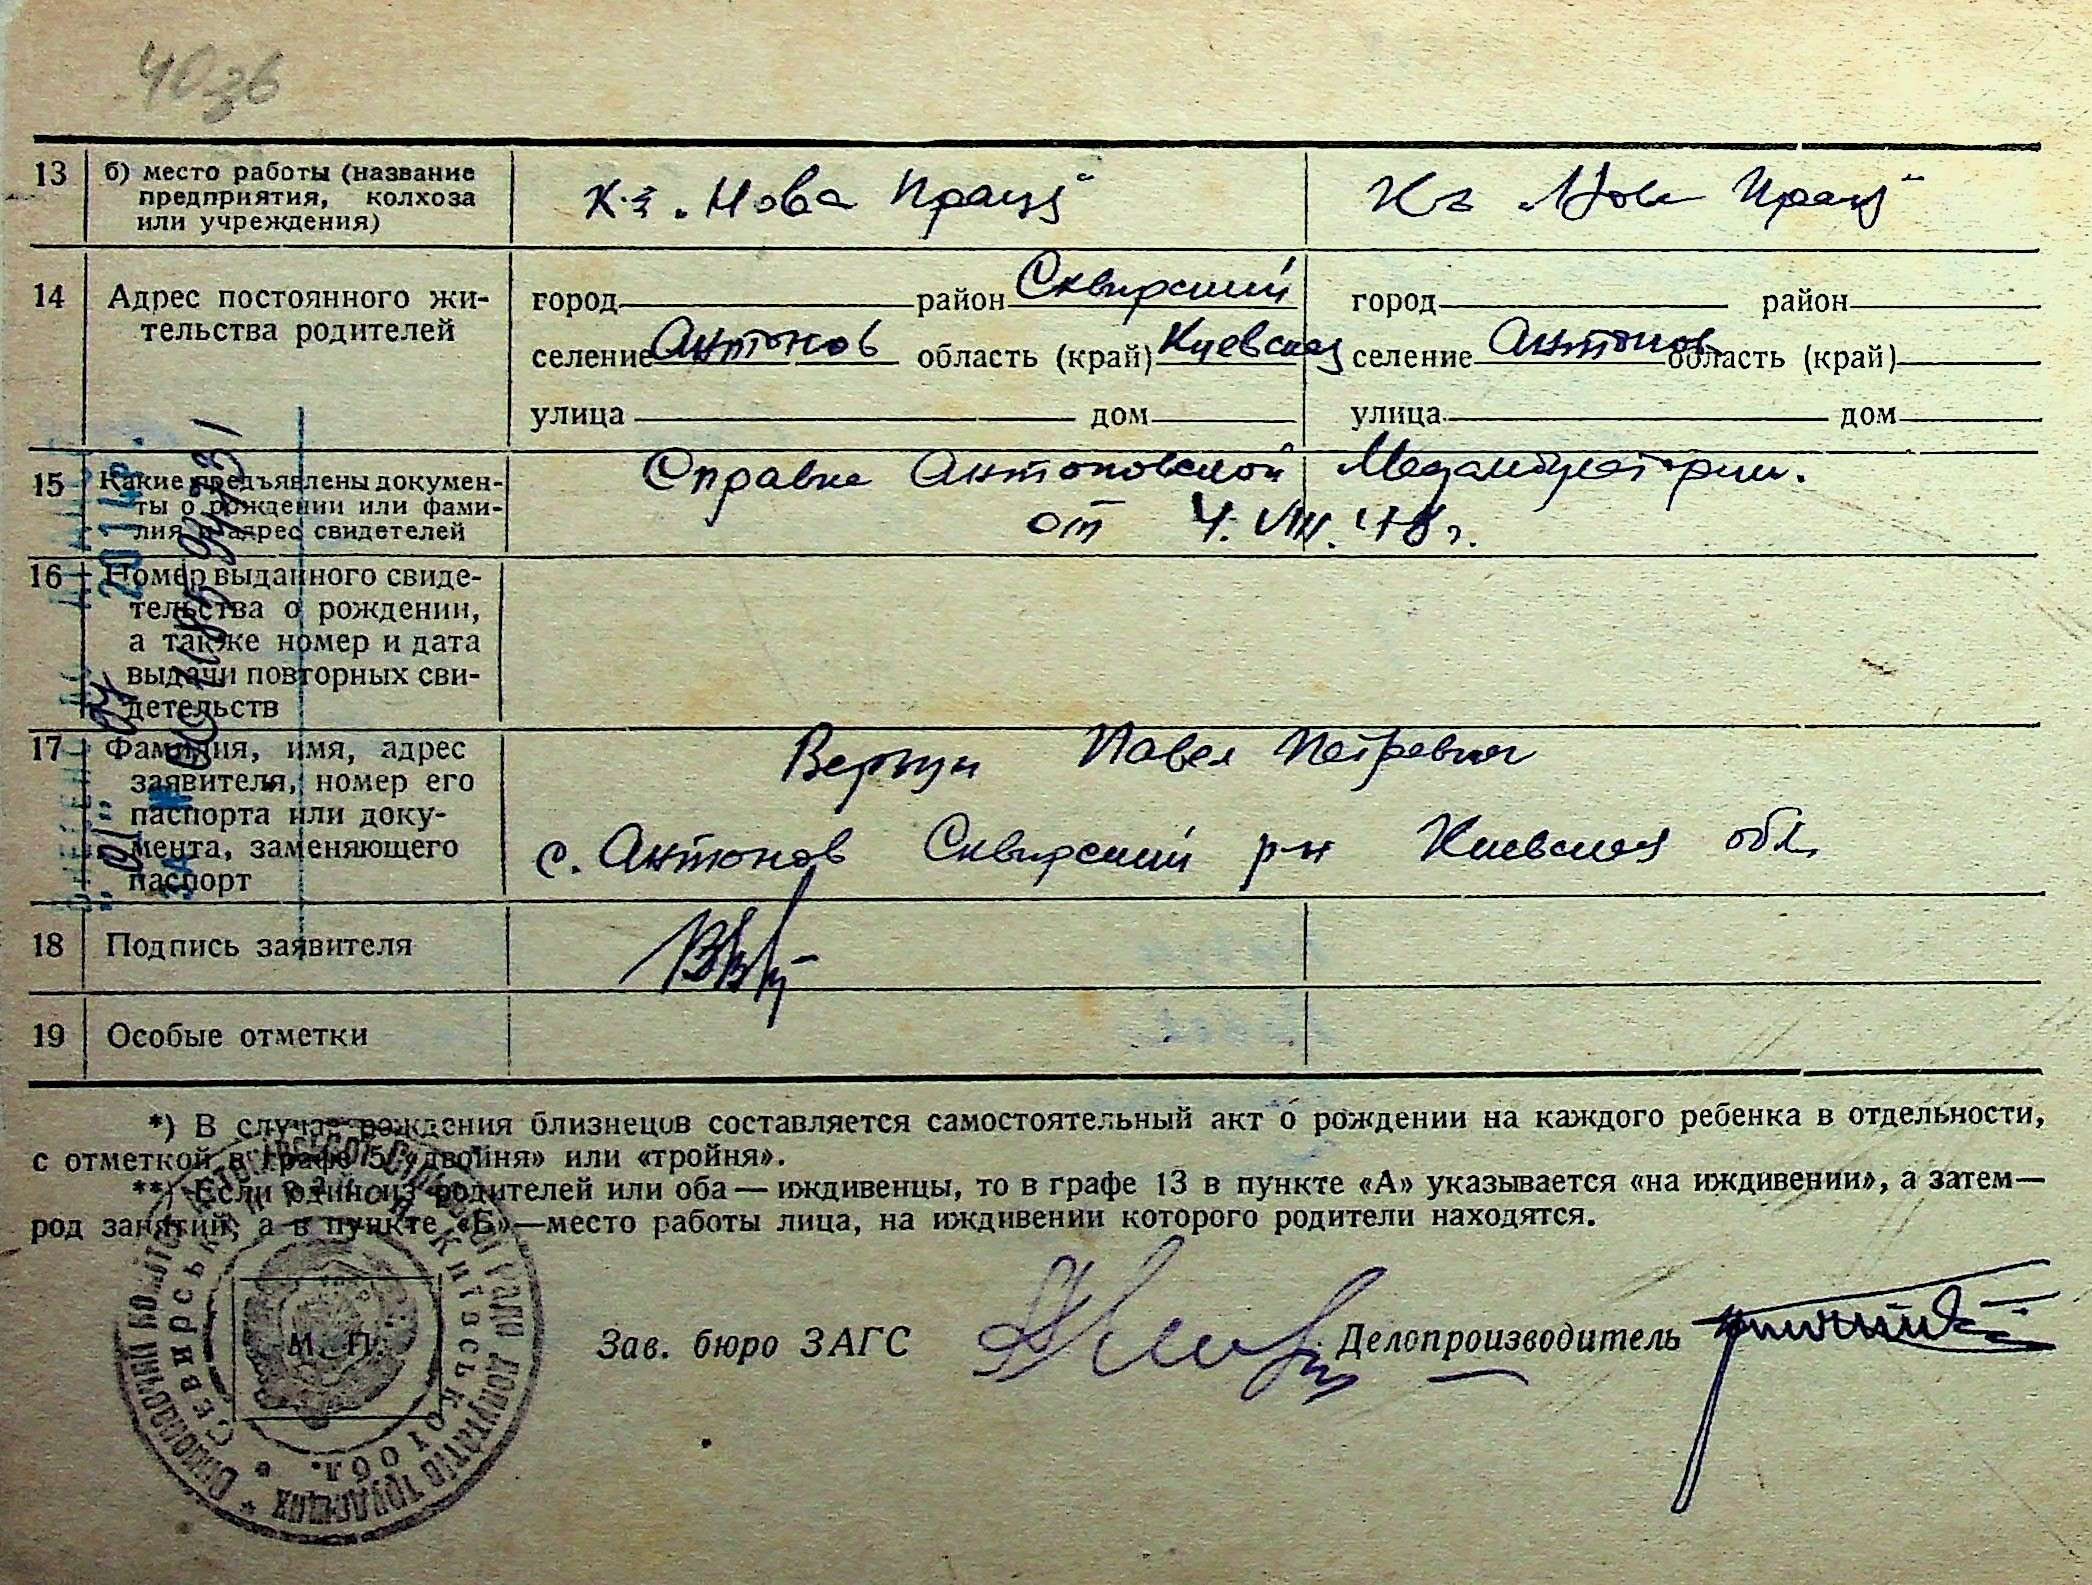 13 б) место работы (название
предприятия, колхоза
или учреждения)
к-з „Нова Праця“ к-з „Нова Праця“
14 Адрес постоянного жи-
тельства родителей
город район Сквирский город район
селение Антонов область (край) Киевская селение Антонов область (край)
улица дом улица дом
15 Какие предъявлены докумен-
ты о рождении или фами-
лия и адрес свидетелей
Справка Антоновской Медамбулатории.
от 4.VIII.78г.
16 Номер выданного свиде-
тельства о рождении,
а также номер и дата
выдачи повторных сви-
детельств
17 Фамилия, имя, адрес
заявителя, номер его
паспорта или доку-
мента, заменяющего
паспорт
Павел Петрович
с. Антонов Сквирский р-н Киевская обл.
18 Подпись заявителя
19 Особые отметки
*) В случае рождения близнецов составляется самостоятельный акт о рождении на каждого ребенка в отдельности,
с отметкой в графе 5 «двойня» или «тройня».
**) Если один из родителей или оба — иждивенцы, то в графе 13 в пункте «А» указывается «на иждивении», а затем—
род занятий, а в пункте «Б»—место работы лица, на иждивении которого родители находятся.
М. П.
Зав. бюро ЗАГС Делопроизводитель